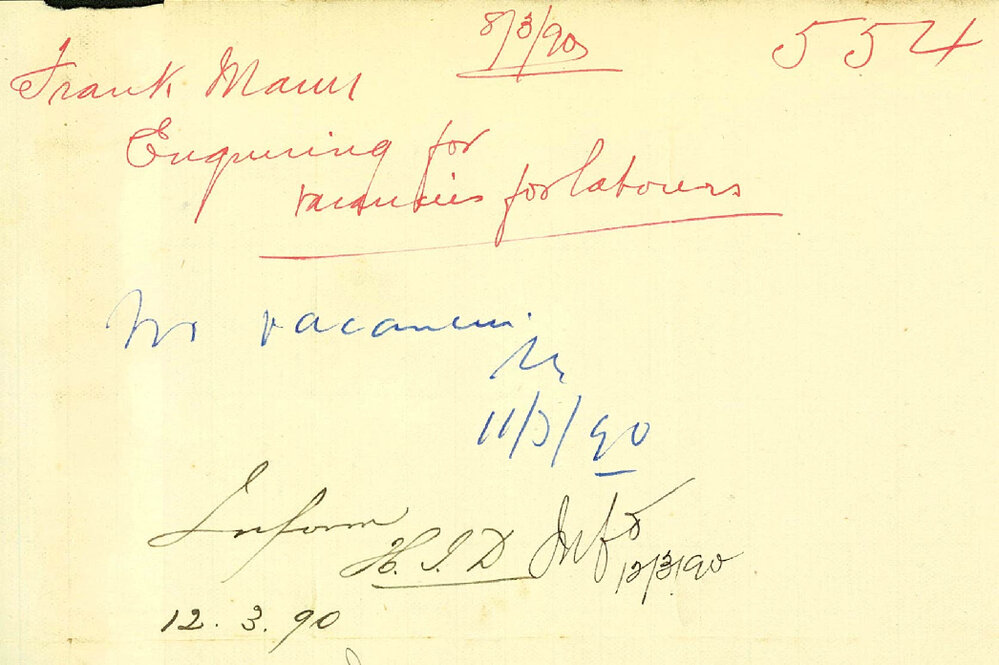 8/3/90
554
Frank
Enquiring for
vacancies for labourers
No vacancies
11/3/90
Inform
H. J. D
12/3/90
12. 3. 90